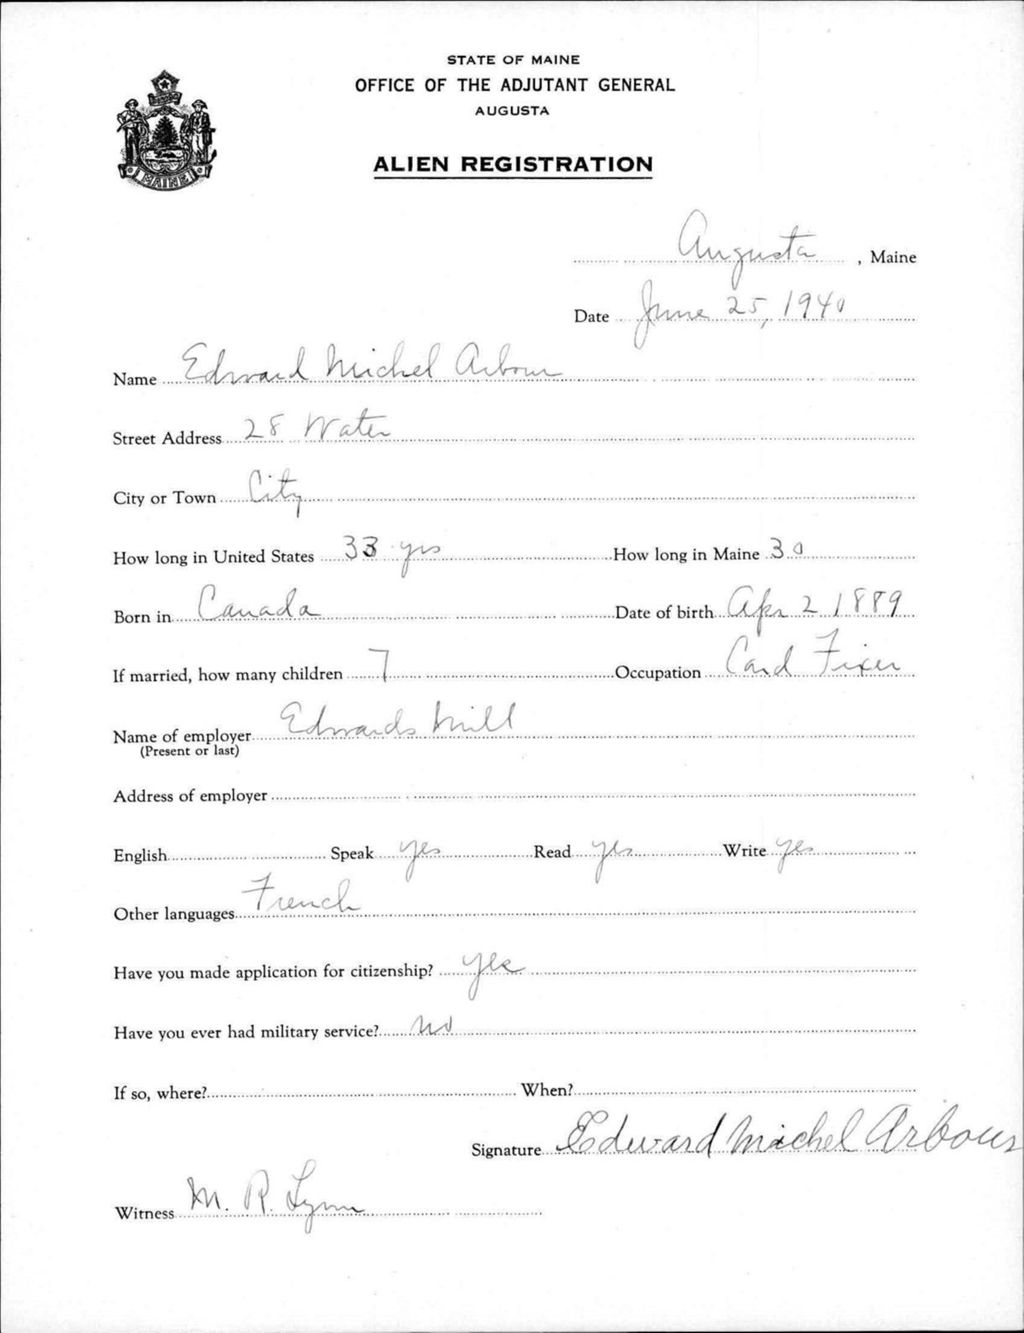 STATE OF MAINE
OFFICE OF THE ADJUTANT GENERAL
AUGUSTA
MAINE
ALIEN REGISTRATION
Augusta, Maine
Date June 25, 1940
Name Edward Michel Arbour
Street Address 28 Water
City or Town City
How long in United States 33 yrs How long in Maine 30
Born in Canada Date of birth Apr 2 1889
If married, how many children 7 Occupation Card Fixer
Name of employer Edwards Mill
(Present or last)
Address of employer
English Speak yes Read yes Write yes
Other languages French
Have you made application for citizenship? yes
Have you ever had military service? no
If so, where? When?
Signature Edward Michel Arbour
Witness M. R. Lynn